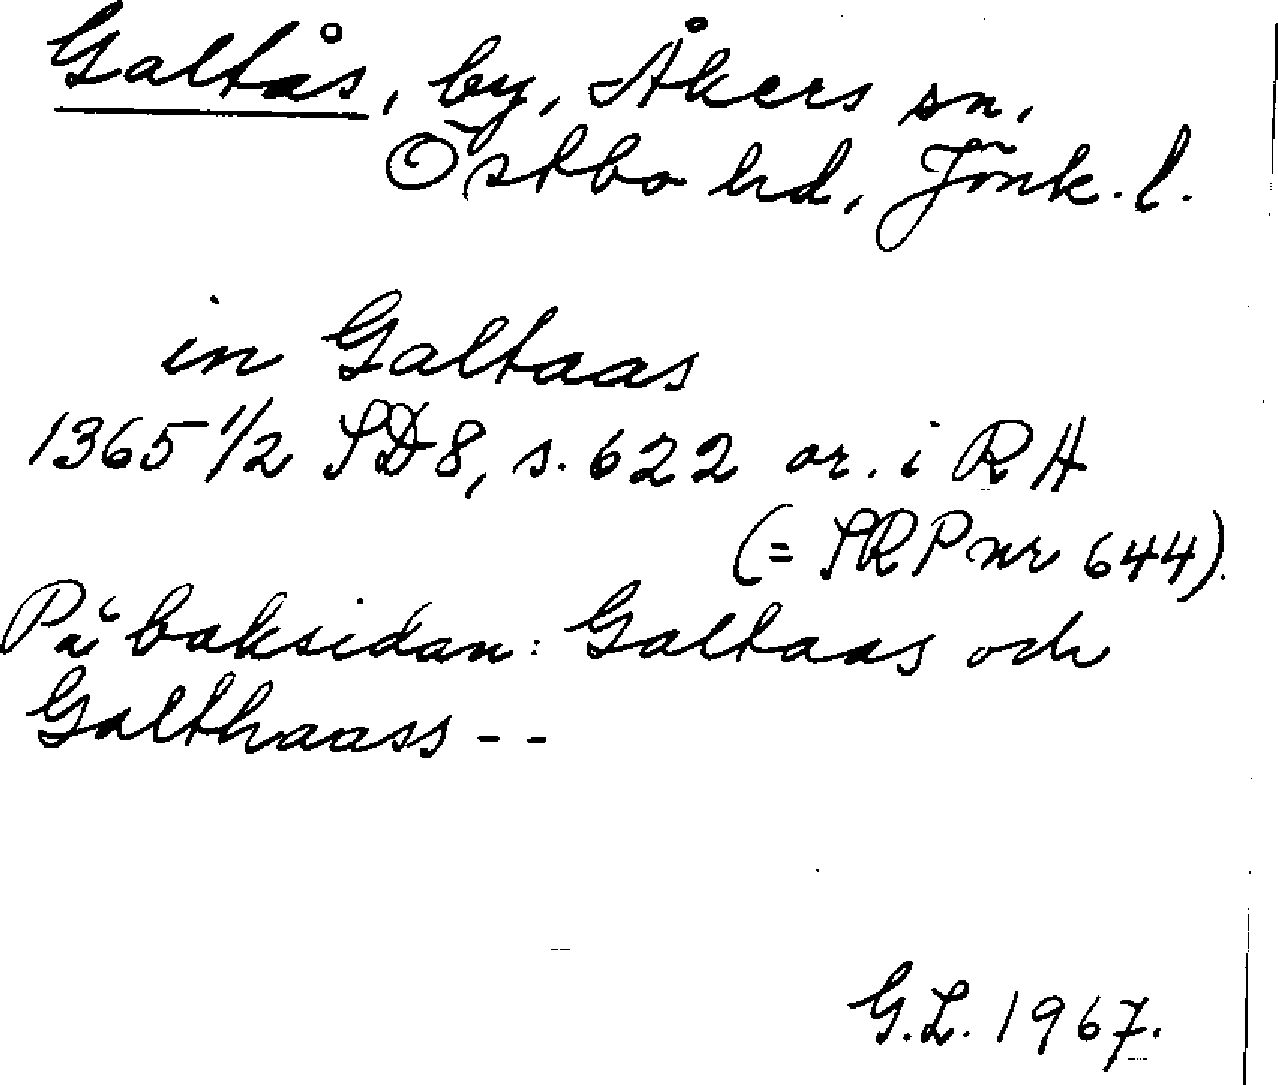 Galtås, by, Åkers sn,
Östbo hd, Jönk. l.
in Galtaas
1365 1/2 SD8, s. 622 or. i RA
(= SRP nr 644).
På baksidan: Galtaas och
Galthaass - -
G.L. 1967.